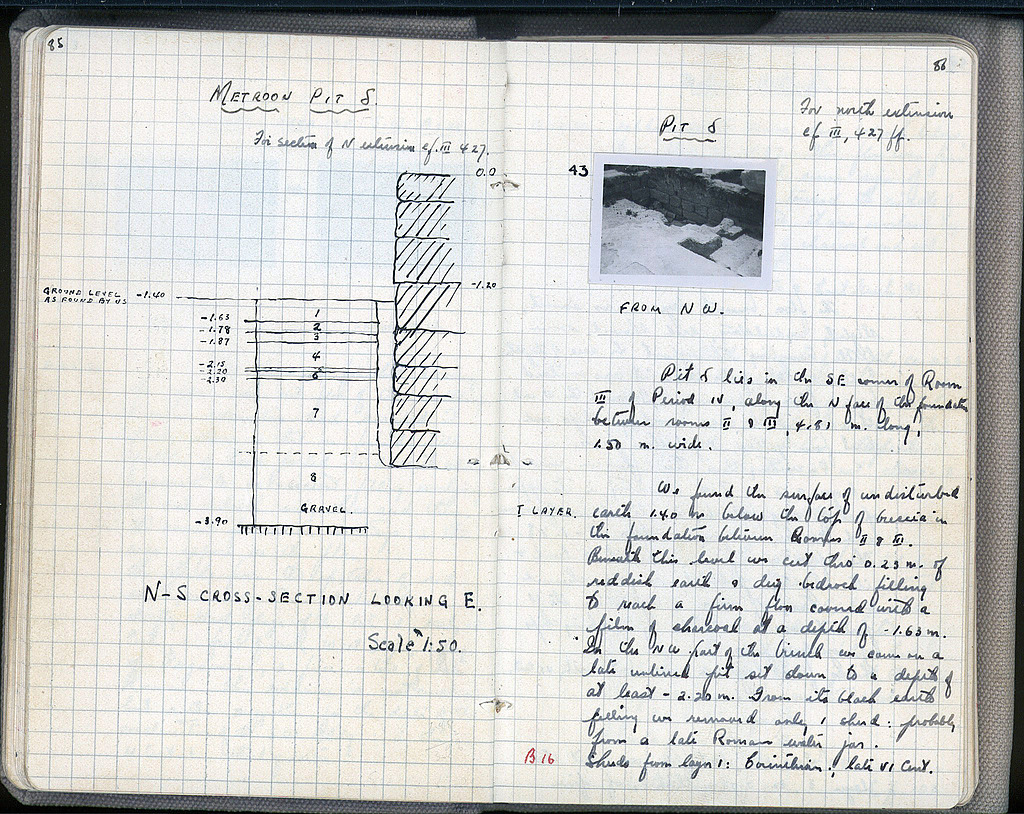 85
METROON PIT δ.
For section of N extension cf. III 427.
0.0
-1.20
GROUND LEVEL -1.40
AS FOUND BY US
-1.63
-1.78
-1.87
-2.15
-2.20
-2.30
1
2
3
4
5
6
7
8
GRAVEL.
-3.90
N-S CROSS-SECTION LOOKING E.
Scale 1:50.
86
For north extension
cf III, 427 ff.
PIT δ
43
FROM N W.
Pit δ lies in the SE corner of Room
III of Period IV, along the N face of the foundation
between rooms II & III, 4.81 m. long,
1.50 m. wide.
We found the surface of undisturbed
I LAYER. earth 1.40 m below the top of breccia in
the foundation between Rooms II & III.
Beneath this level we cut thro' 0.23 m. of
reddish earth & dug bedrock filling
to reach a firm floor covered with a
film of charcoal at a depth of -1.63 m.
In the NW part of the trench we came on a
late unlined pit set down to a depth of
at least -2.20 m. From its black earth
filling we removed only 1 sherd: probably
from a late Roman water jar.
B 16 Sherds from layer 1: Corinthian; late VI Cent.